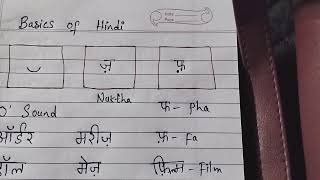 Basics of Hindi
Date
Page
ॅ ज़ फ़
Nuktha
O' Sound फ - Pha
ऑर्डर मरीज़ फ़ - Fa
हॉल मेज़ फ़िल्म - Film